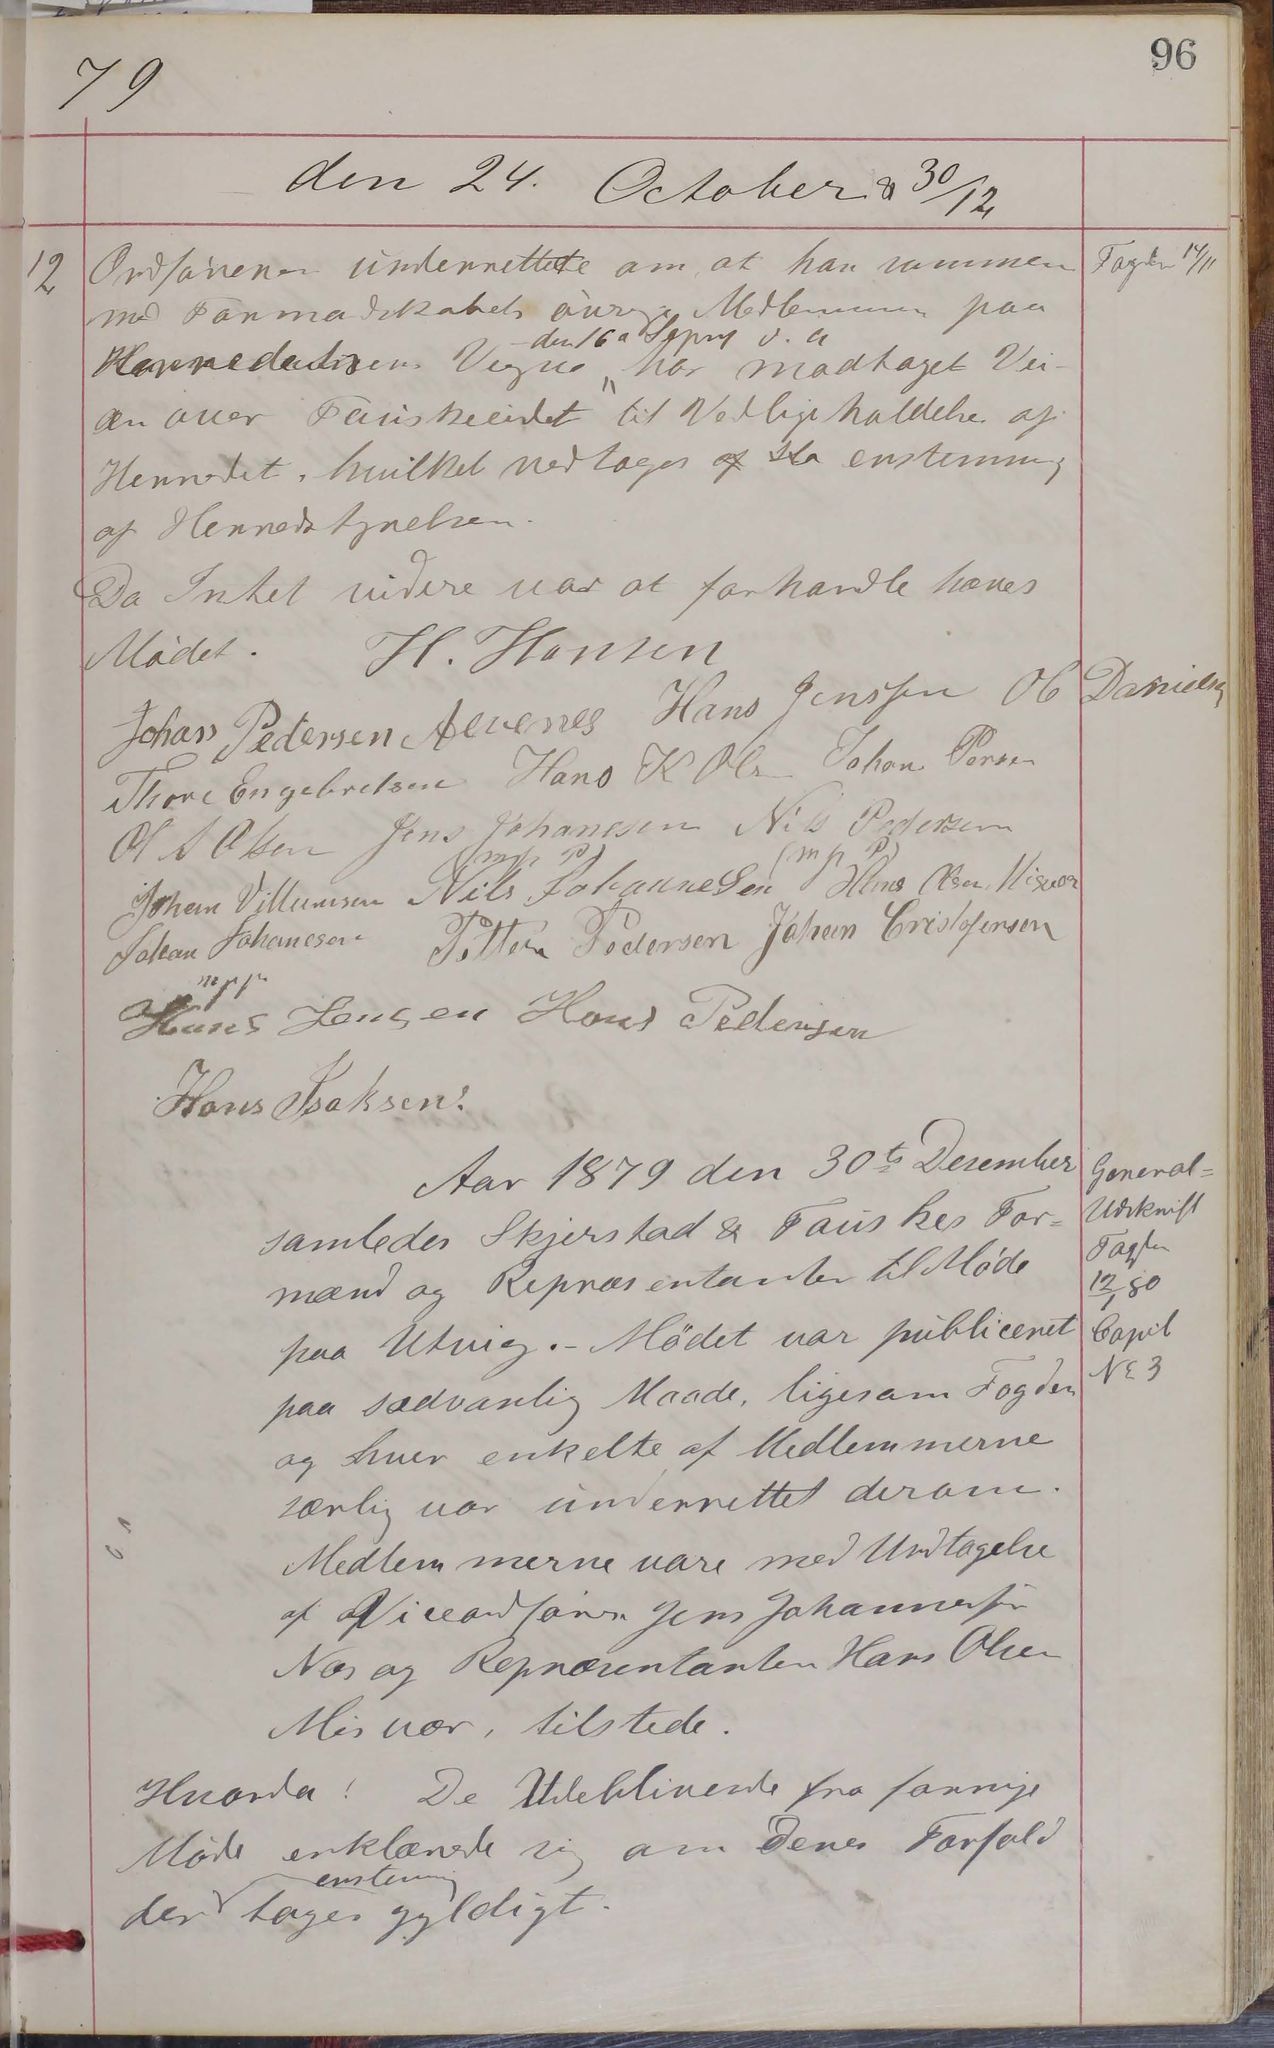 96
79
den 24. October & 30/12
12 Ordføreren underrettede om at han sammen Fogden 14/11
med Formadskabets øvrige Medlemmer paa
den 16de Septmr d. a
Herredets Vegne har modtaget Vei-
en over Fauskeeidet til Vedligeholdelse af
Herredet, hvilket vedtoges enstemmig
af Herredstyrelsen.
Da Intet videre var at forhandle hæves
Mødet. H. Hansen
Johan Pedersen Alvenes Hans Jenssen Ol Danielsen
Thore Engebretsen Hans K Olsen Johan Persen
Ol A Olsen Jens Johanesen Nils Pedersen
(m p P) (m p P)
Johan Villumsen Nils Johannesen Hans Olsen Misvær
Johan Johanesen Petter Pedersen Johan Cristofersen
m p p
Hans Jensen Hans Pedersen
Hans Isaksen.
Aar 1879 den 30te Desember General=
samledes Skjerstad & Fauskes For= Udskrift
mænd og Repræsentanter til Møde Fogden
12/1 80
paa Utvig. - Mødet var publiceret Copil
paa sædvanlig Maade, ligesom Fogden No 3
og hver enkelte af Medlemmerne
særlig var underrettet derom.
Medlemmerne vare med Undtagelse
af Viceordføren Jens Johannesen
Næs og Repræsentanten Hans Olsen
Misvær, tilstede.
Hvorda! De Udeblivende fra forrige
Møde erklærede sig om deres Forfald
enstemmig
der toges gyldigt.